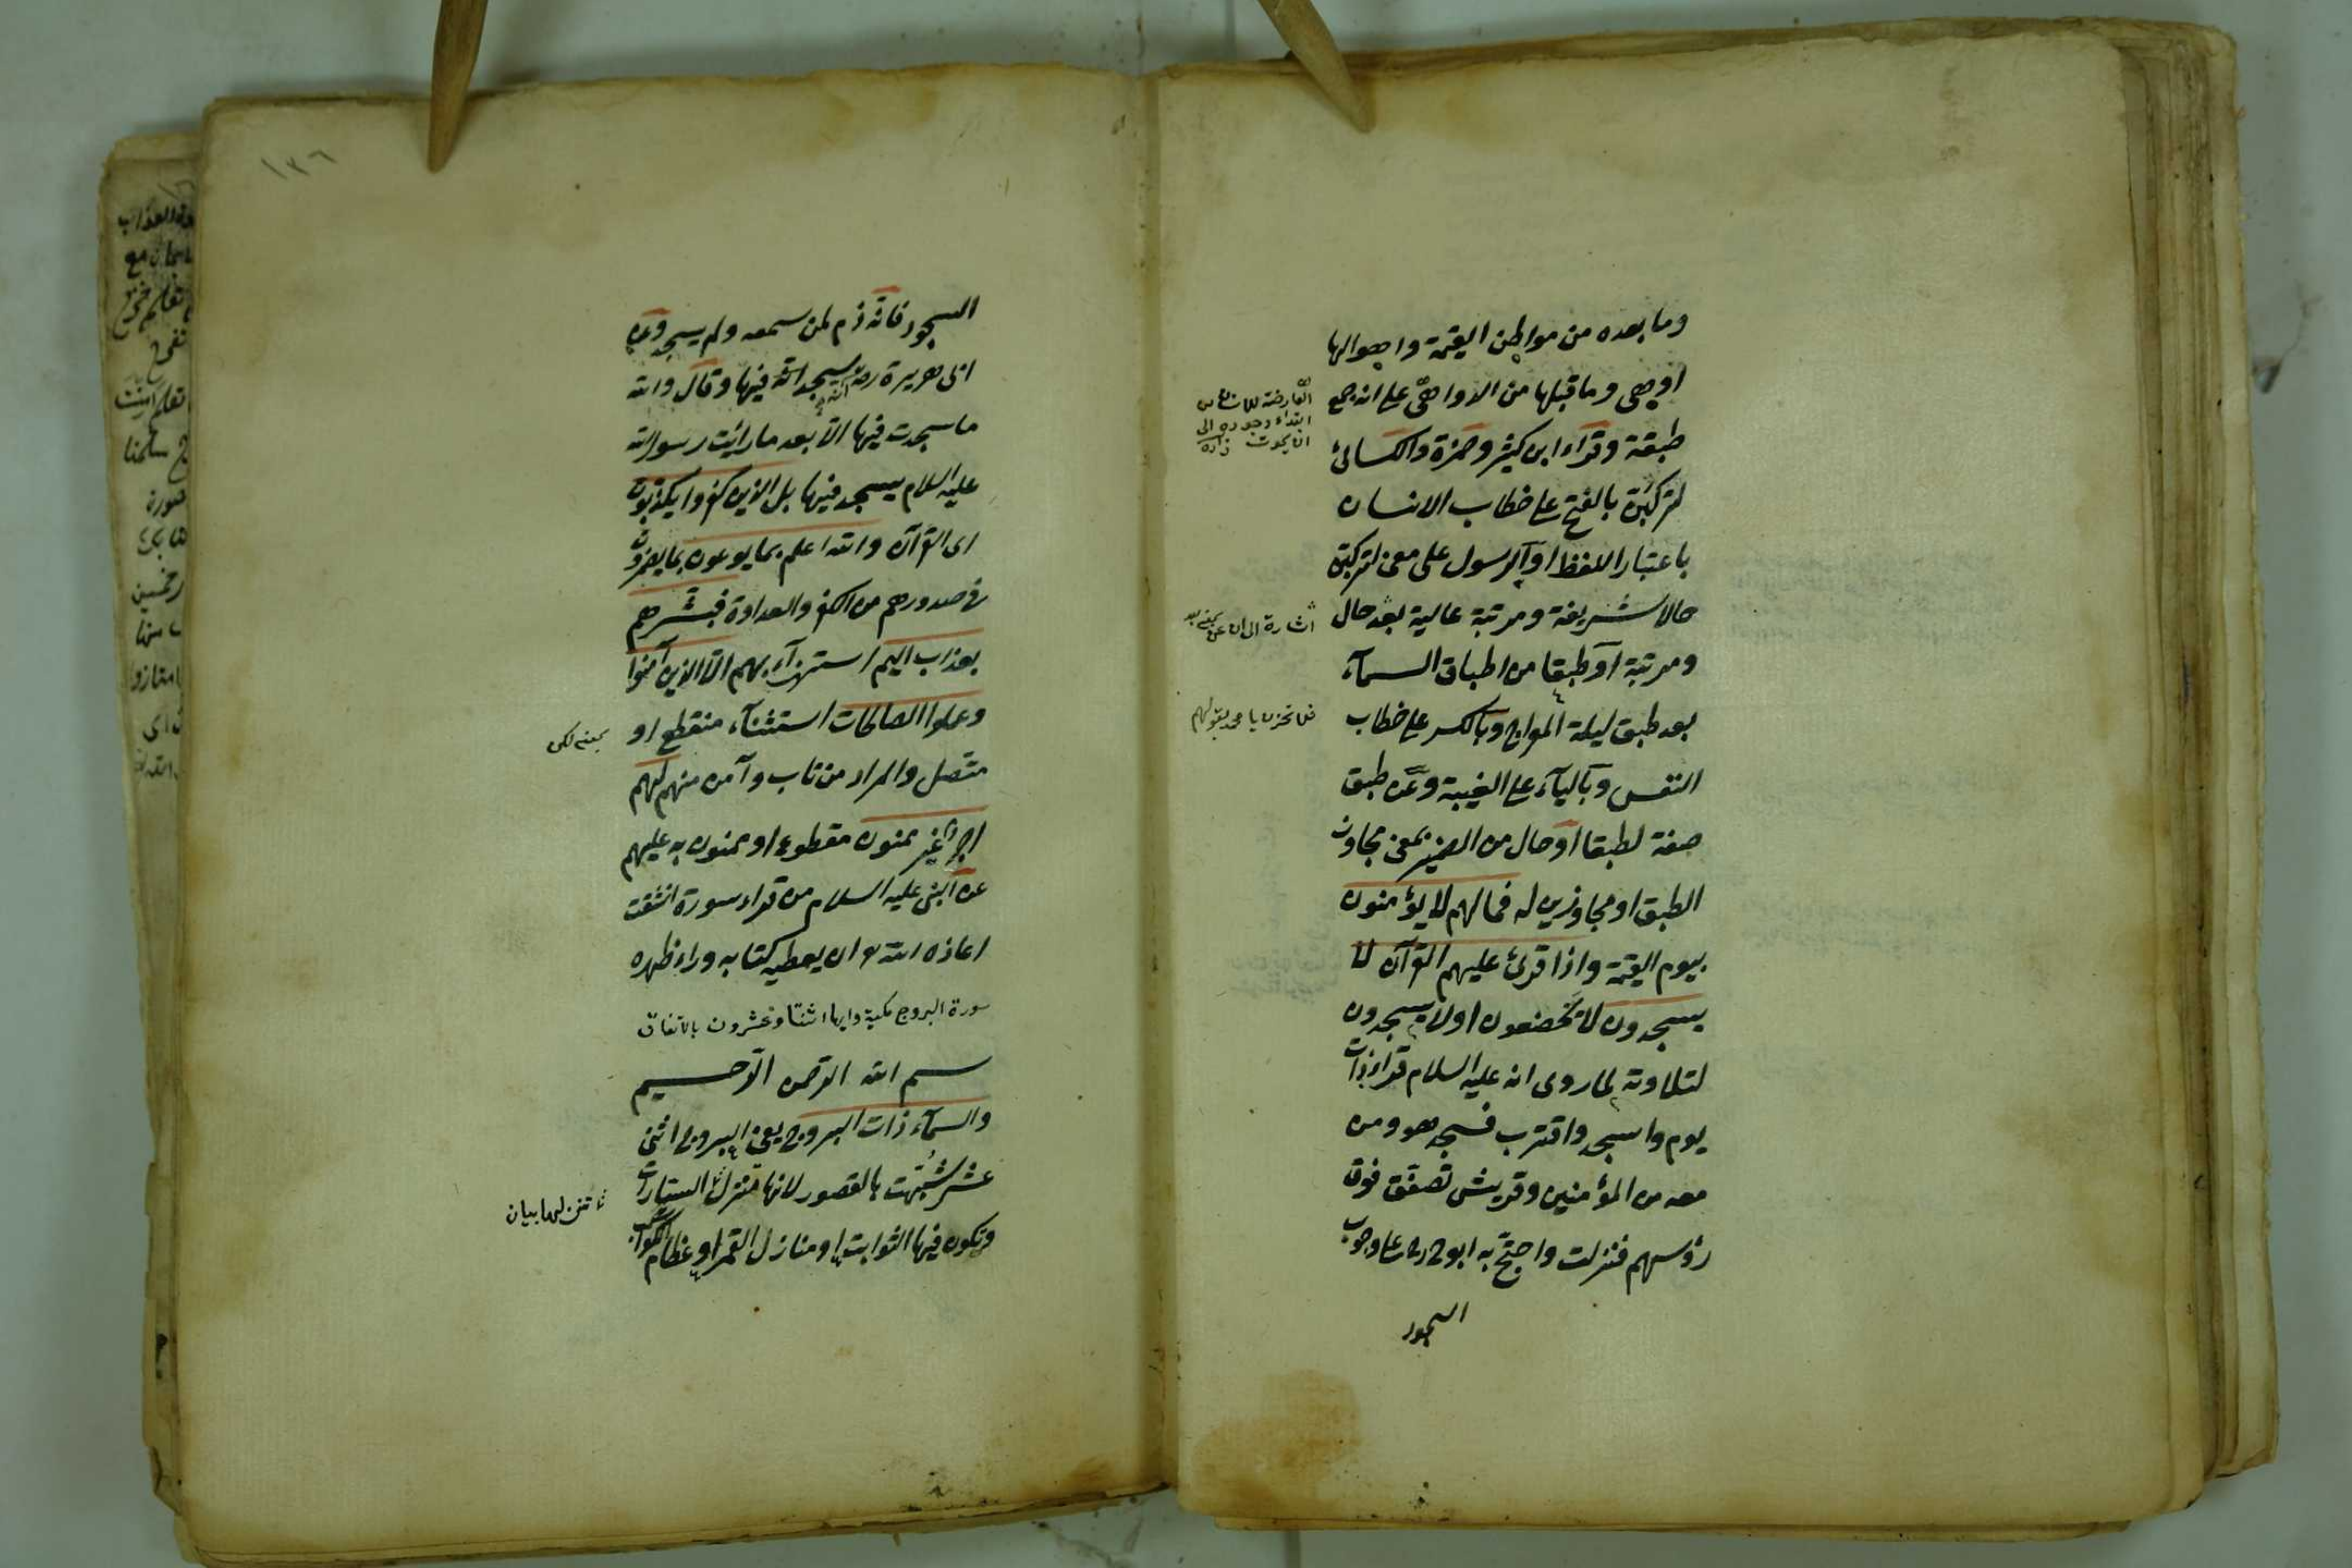 وما بعده من مواطن القيمة واهوالها
او هي وما قبلها من الدواهي على انه جمع
طبقة وقراء ابن كثير وحمزة والكسائى
لتركبن بالفتح على خطاب الانسان
باعتبار اللفظ او الرسول على معنى لتركبن
حالا شريفة ومرتبة عالية بعد حال
ومرتبة او طبقا من اطباق السمآء
بعد طبق ليلة المعراج وبالكسر على خطاب
النفس وباليآء على الغيبة وعن طبق
صفة لطبقا او حال من الضمير بمعنى مجاوزا
الطبق او مجاوزين له فما لهم لا يؤمنون
بيوم القيمة واذا قرئ عليهم القرآن لا
يسجدون لا يخضعون او لا يسجدون
لتلاوته لما روى انه عليه السلام قراء ذات
يوم واسجد واقترب فسجد هو ومن
معه من المؤمنين وقريش تصفق فوق
رؤسهم فنزلت واحتج به ابو ح رح على وجوب
السجود
اشارة الى ان عن بمعنى بعد
فلا تحزن يا محمد بقولهم
١٣٦
السجود فانه ذم لمن سمعه ولم يسجد وعن
ابى هريرة رضه انه سجد فيها وقال والله
ما سجدت فيها الا بعد ما رايت رسول الله
عليه السلام يسجد فيها بل الذين كفروا يكذبون
اى القرآن والله اعلم بما يوعون بما يضمرون
فى صدورهم من الكفر والعداوة فبشرهم
بعذاب اليم استهزآء بهم الا الذين آمنوا
وعملوا الصالحات استثنآء منقطع او
متصل والمراد من تاب وآمن منهم لهم
اجر غير ممنون مقطوع او ممنون به عليهم
عن النبى عليه السلام من قراء سورة انشقت
اعاذه الله ان يعطيه كتابه وراء ظهره
سورة البروج مكية وايها اثنتا وعشرون بالاتفاق
بسم الله الرحمن الرحيم
والسمآء ذات البروج يعنى البروج اثنى
عشر شبهت بالقصور لانها تنزل السيارات
وتكون فيها الثوابت او منازل القمر او عظام الكواكب
بمعنى لكن